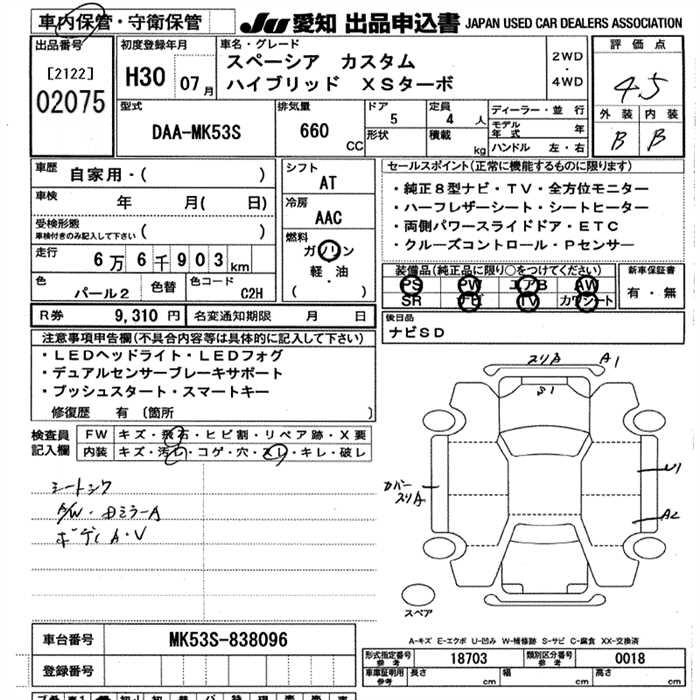 車内保管・守衛保管
JU 愛知 出品申込書 JAPAN USED CAR DEALERS ASSOCIATION
出品番号
[2122]
02075
初度登録年月
H30 07月
車名・グレード
スペーシア カスタム
ハイブリッド XSターボ
2WD
・
4WD
評価点
4.5
外装 内装
B B
型式
DAA-MK53S
排気量
660 CC
ドア 5
形状
定員 4人
積載 kg
ディーラー・並行
モデル年式 年
ハンドル 左・右
車歴
自家用・( )
車検 年 月( 日)
受検形態
車検付きのみ記入して下さい ( )
走行 6万6千903km
色 パール2 色替 色コード C2H
シフト
AT
冷房
AAC
燃料
ガソリン
軽・油
( )
セールスポイント(正常に機能するものに限ります)
・純正8型ナビ・TV・全方位モニター
・ハーフレザーシート・シートヒーター
・両側パワースライドドア・ETC
・クルーズコントロール・Pセンサー
装備品(純正品に限り○をつけてください)
PS PW エアB AW
SR ナビ TV カワシート
新車保証書
有・無
R券 9,310円 名変通知期限 月 日
後日品
ナビSD
注意事項申告欄(不具合内容等は具体的に記入して下さい)
・LEDヘッドライト・LEDフォグ
・デュアルセンサーブレーキサポート
・プッシュスタート・スマートキー
修復歴 有 [箇所 ]
検査員記入欄
FW キズ・飛石・ヒビ割・リペア跡・X要
内装 キズ・汚レ・コゲ・穴・スレ・キレ・破レ
シートシワ
ボディA・V
スリA A1
S1
カバー
スリA
U1
A2
スペア
A-キズ E-エクボ U-凹み W-補修跡 S-サビ C-腐食 XX-交換済
車台番号 MK53S-838096
登録番号
形式指定番号 参考 18703 類別区分番号 参考 0018
車庫証明用 参考 長さ cm 幅 cm 高さ cm